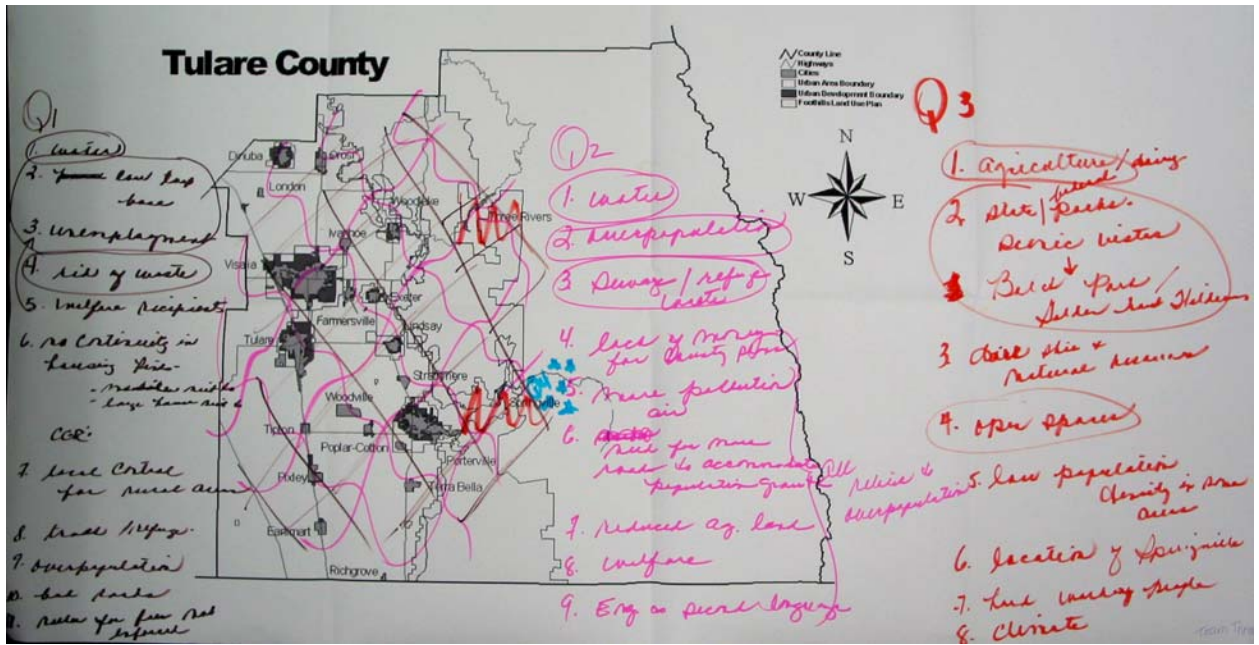 Tulare County
County Line
Highways
Cities
Urban Area Boundary
Urban Development Boundary
Foothills Land Use Plan
N
W E
S
Dinuba
Orosi
London
Woodlake
Three Rivers
Ivanhoe
Visalia
Exeter
Farmersville
Lindsay
Tulare
Strathmore
Springville
Woodville
Tipton
Poplar-Cotton
Porterville
Pixley
Terra Bella
Earlimart
Richgrove
Q1
1. water
2. low tax
base
3. unemployment
4. rid of waste
5. welfare recipients
6. no continuity in
housing
7. local control
for rural area
8. refuge
9. overpopulation
10. bad roads
11. rules for few not
enforced
Q2
1. water
2. overpopulation
3 Sewage / ref
waste
4. lack of money
for County
5. more pollution
air
6. need for more
roads to accommodate
population growth
All
relive to
overpopulation
7. reduced ag. land
8. welfare
9. Eng as second language
Q3
1. agriculture / dairy
2. State / Parks.
Scenic vistas
3
natural resources
4. open spaces
5. low population
density in some
areas
6. location of Springville
7. hard working people
8. Climate